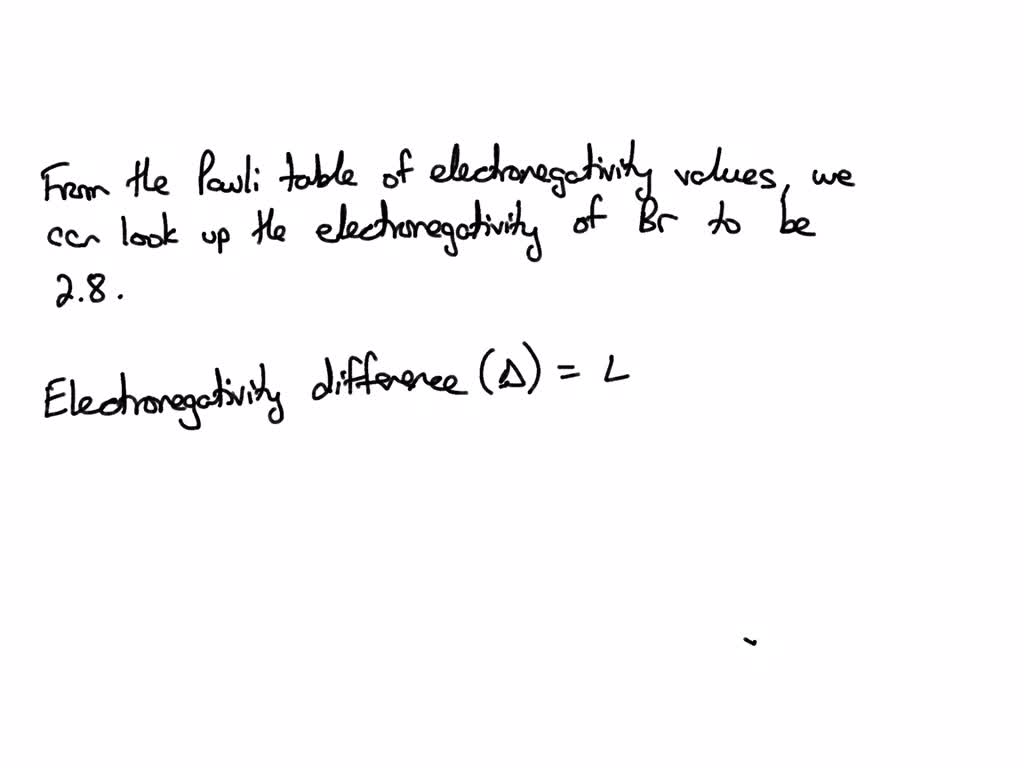 From the Pauli table of electronegativity values, we
can look up the electronegativity of Br to be
2.8.
Electronegativity difference (Δ) = L